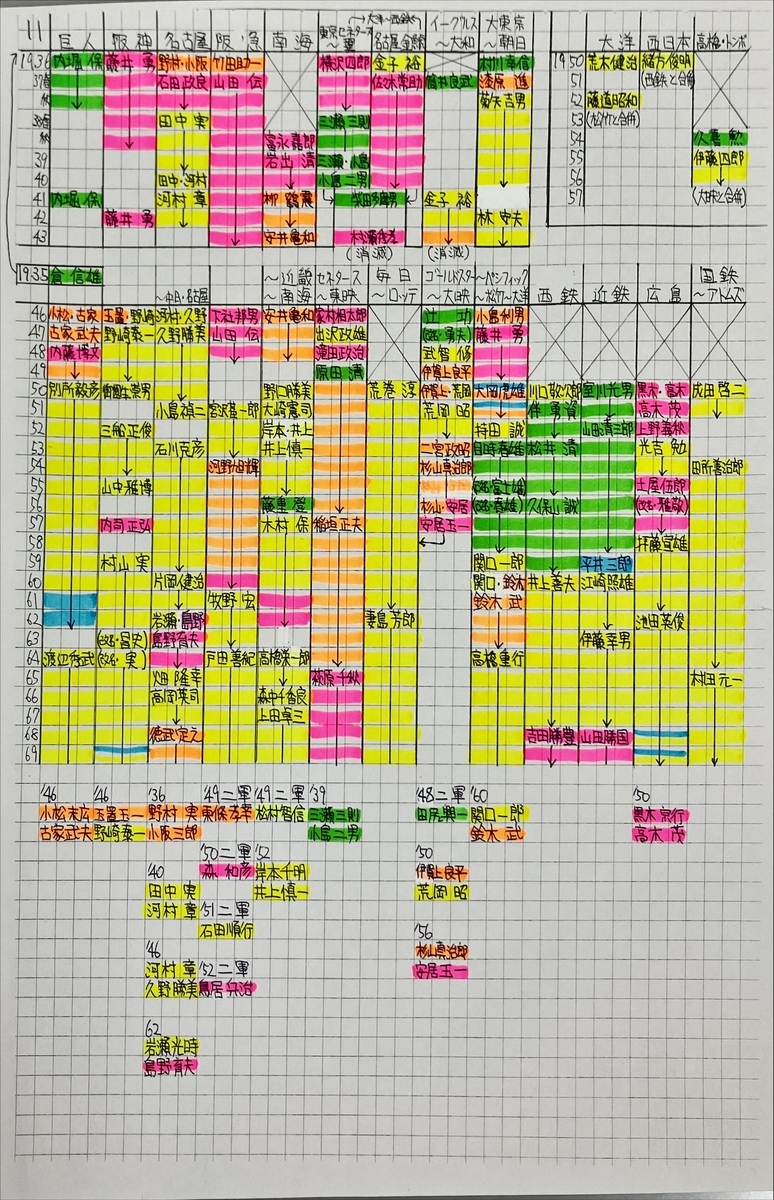 11
大洋〜西鉄
巨人 阪神 名古屋 阪急 南海 東京セネタース〜翼 名古屋金鯱 イーグルス〜大和 大東京〜朝日 大洋 西日本 高橋・トンボ
1936 内堀 保 藤井 勇 野村・小阪 竹田助一 横沢四郎 金子 裕 村川幸信 1950 荒木健治 緒方俊明
37春 石田政良 山田 伝 佐々木常助 筒井良武 漆原 進 51 (西鉄と合併)
秋 菊矢吉男 52 藤道昭和
38春 田中 実 三瀬三則 53 (松竹と合併)
秋 富永嘉郎 54 久喜 勲
39 岩出 清 三瀬・小島 55 伊藤四郎
40 田中・河村 小島二男 56
41 内堀 保 河村 章 柳 鶴震 柴田多摩男 金子 裕 57 (大映と合併)
42 藤井 勇 林 安夫
43 安井亀和 村瀬保孝
(消滅) (消滅)
1935 倉 信雄
〜中日・名古屋 〜近畿〜南海 セネタース〜東映 毎日〜ロッテ ゴールドスター〜大映 〜パシフィック〜松竹〜大洋 西鉄 近鉄 広島 国鉄〜アトムズ
46 小松・古家 玉置・野崎 河村・久野 下社邦男 安井亀和 家村相太郎 辻 功 小島利男
47 古家武夫 野崎泰一 久野勝美 山田 伝 出沢政雄 (改名・勇夫) 藤井 勇
48 内藤博文 滝田政治 武智 修
49 原田 清 伊賀上良平
50 別所毅彦 御園生崇男 野口勝美 荒巻 淳 伊賀上・荒岡 大岡虎雄 川口敬次郎 室川光男 黒木・高木 成田啓二
51 小島禎二 宮沢基一郎 大崎憲司 荒岡 昭 伴 勇資 高木 茂
52 三船正俊 岸本・井上 持田 誠 山田清三郎 上野義秋
53 石川克彦 井上慎一 二宮政昭 目時春雄 松井 清 光吉 勉
54 河野旭輝 杉山真治郎 田所善治郎
55 山中雅博 (改名・富士雄) 土屋伍郎
56 藤重 登 杉山・安居 (改名・春雄) 久保山 誠 (改名・雅敬)
57 内司正弘 木村 保 稲垣正夫 安居玉一
58 拝藤宣雄
59 村山 実 関口一郎 平井三郎
60 片岡健治 関口・鈴木 井上善夫 江崎照雄
61 牧野 宏 鈴木 武
62 岩瀬・島野 妻島芳郎 池田英俊
63 (改名・昌史) 島野育夫 伊藤幸男
64 渡辺秀武 (改名・実) 戸田善紀 高橋栄一郎 高橋重行
65 畑 隆幸 萩原千秋 村田元一
66 高岡英司 森中千香良
67 上田卓三
68 徳武定之 吉田勝豊 山田勝国
69
'46 '46 '36 '49二軍 '49二軍 '39 '48二軍 '60 '50
小松末広 玉置玉一 野村 実 東保孝幸 松村智信 三瀬三則 田尻興一 関口一郎 黒木宗行
古家武夫 野崎泰一 小阪三郎 小島二男 鈴木 武 高木 茂
'50二軍 '52 '50
'40 森 和彦 岸本千明 伊賀上良平
田中 実 井上慎一 荒岡 昭
河村 章 '51二軍
石田順行 '56
'46 杉山真治郎
河村 章 '52二軍 安居玉一
久野勝美 鳥居兵治
62
岩瀬光時
島野育夫